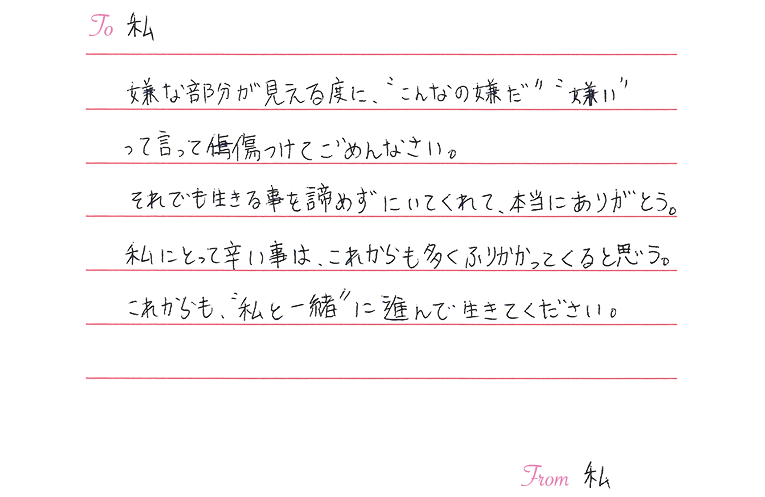 To 私
嫌な部分が見える度に、〝こんなの嫌だ〞〝嫌い〞
って言って傷つけてごめんなさい。
それでも生きる事を諦めずにいてくれて、本当にありがとう。
私にとって辛い事は、これからも多くふりかかってくると思う。
これからも、〝私と一緒〞に進んで生きてください。
From 私